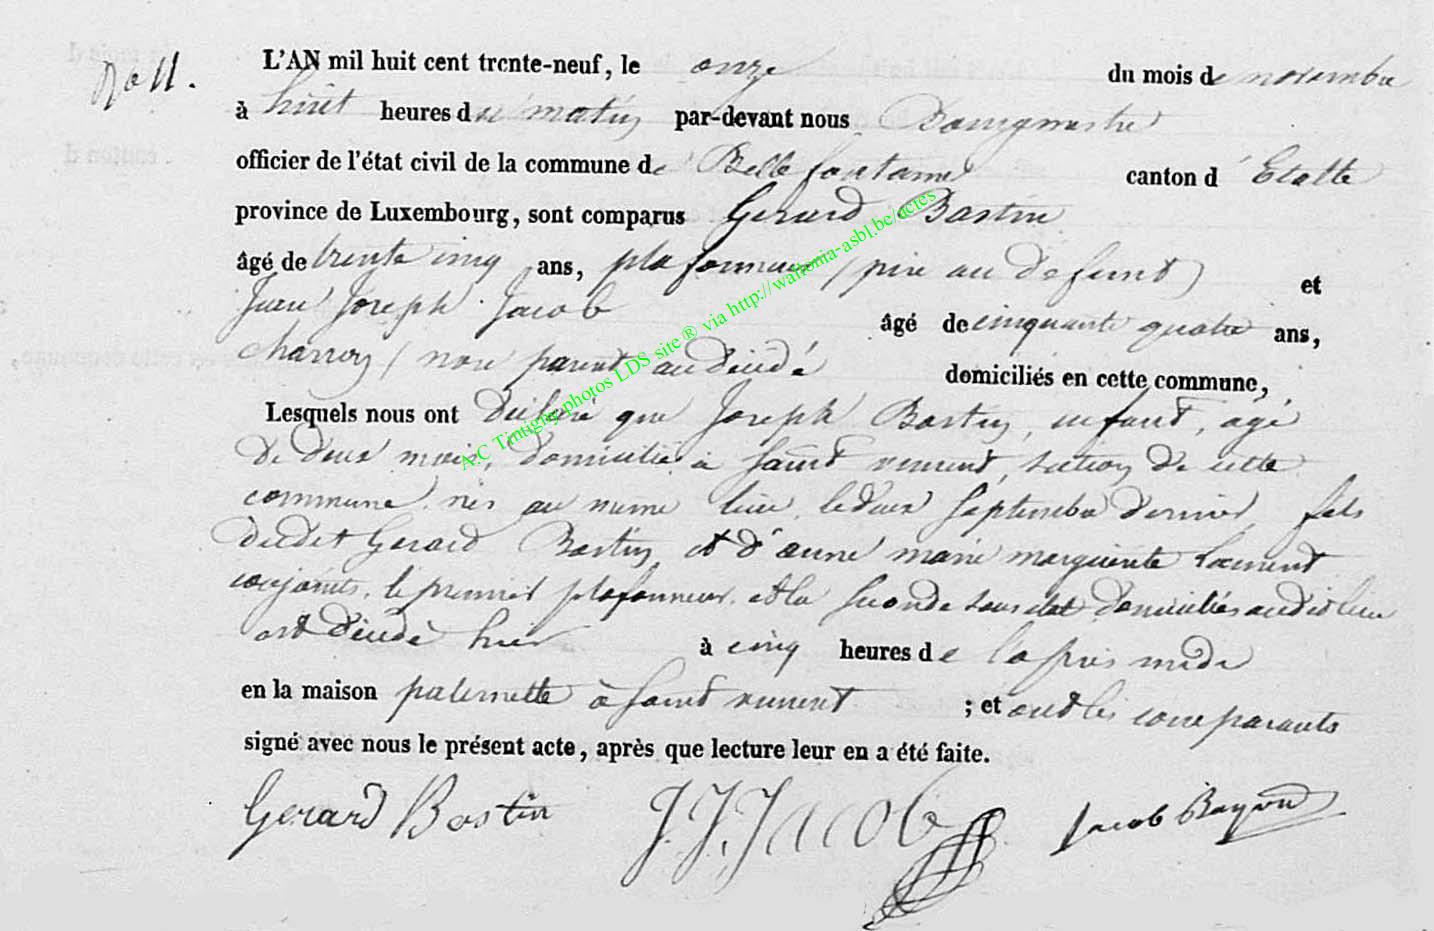 No 11.
L'AN mil huit cent trente-neuf, le onze du mois de novembre
à huit heures du matin par-devant nous Bourgmestre
officier de l'état civil de la commune de Bellefontaine canton d'Etalle
province de Luxembourg, sont comparus Gerard Bastin
âgé de trente cinq ans, plafonneur (père au defunt) et
Jean Joseph Jacob âgé de cinquante quatre ans,
charron (non parent au décédé domiciliés en cette commune,
Lesquels nous ont déclaré que Joseph Bastin, enfant, agé
de deux mois, domicilié à saint vincent, section de cette
commune, nés au même lieu, le deux septembre dernier, fils
dudit Gerard Bastin et d'anne marie marguerite Laurent
conjoints, le premier plafonneur, et la seconde sans etat domiciliés audit lieu
est décédé hier à cinq heures de l'apres midi
en la maison paternelle à saint vincent ; et ont les comparants
signé avec nous le présent acte, après que lecture leur en a été faite.
Gerard Bastin J. J. Jacob Jacob
A.C Tintigny photos LDS site ® via http://wallonia-asbl.be/actes